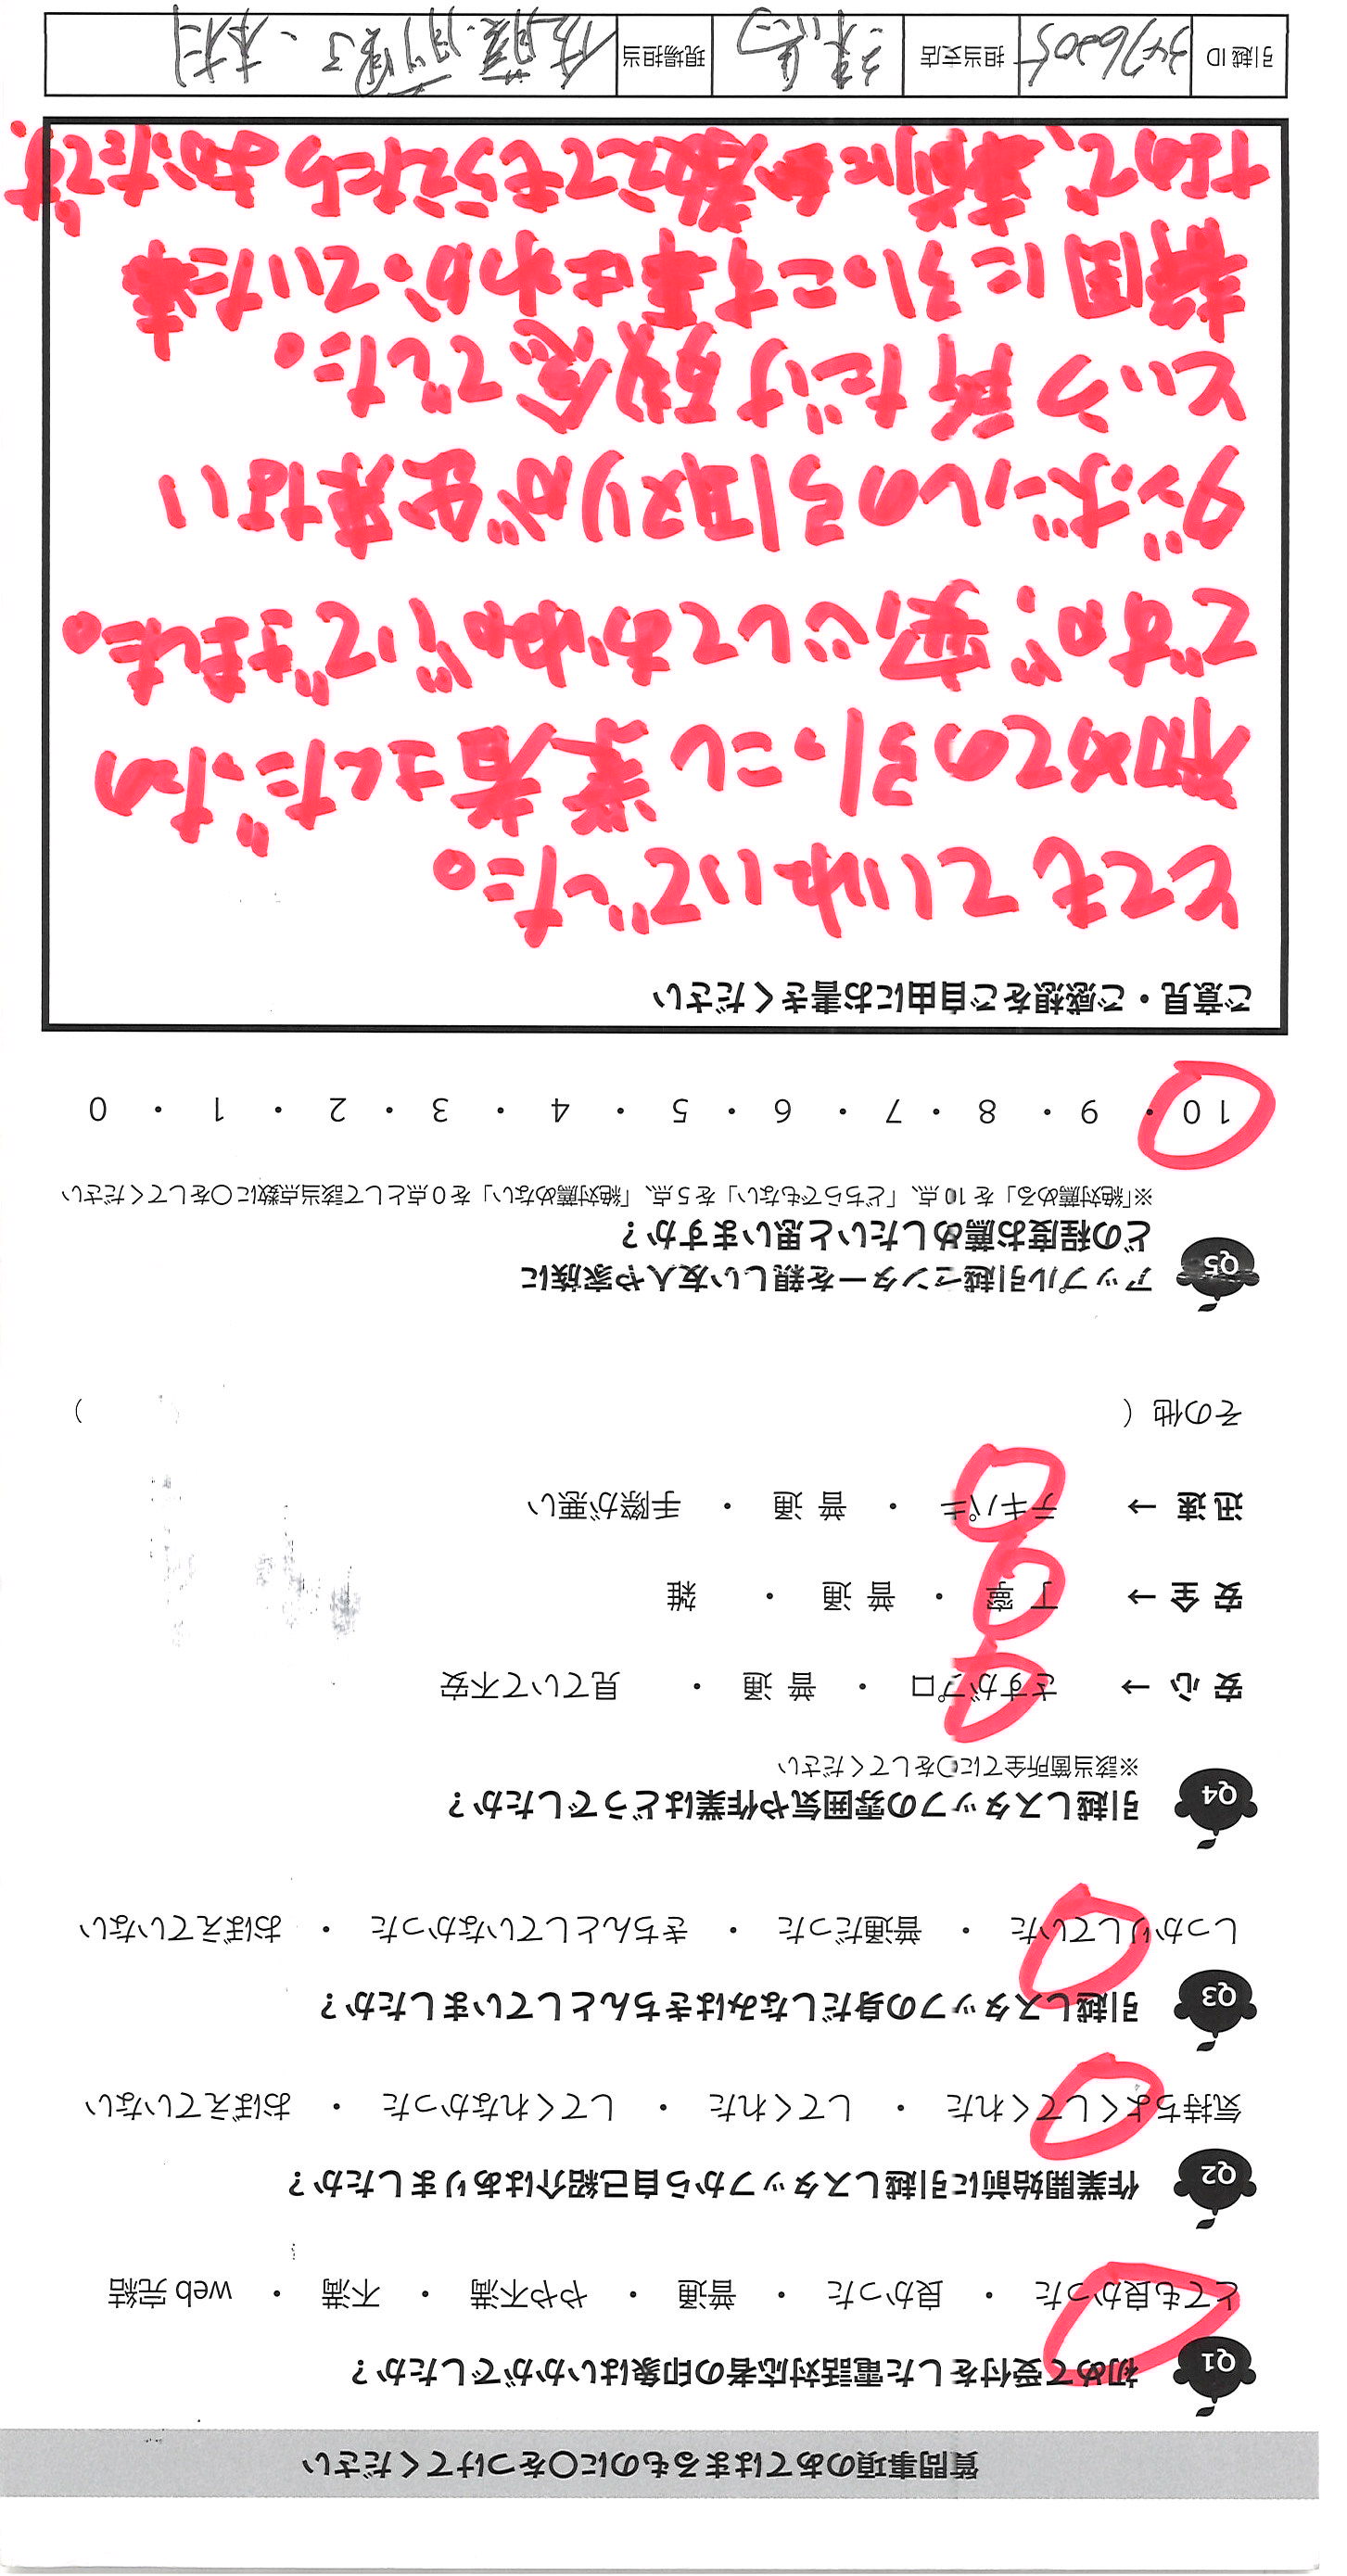 質問事項のあてはまるものに〇をつけてください
Q1 初めて受付をした電話対応者の印象はいかがでしたか？
とても良かった ・ 良かった ・ 普通 ・ やや不満 ・ 不満 ・ web 完結
Q2 作業開始前に引越しスタッフから自己紹介はありましたか？
気持ちよくしてくれた ・ してくれた ・ してくれなかった ・ おぼえていない
Q3 引越しスタッフの身だしなみはきちんとしていましたか？
しっかりしていた ・ 普通だった ・ きちんとしていなかった ・ おぼえていない
Q4 引越しスタッフの雰囲気や作業はどうでしたか？
※該当箇所全てに〇をしてください
安心 → さすがプロ ・ 普通 ・ 見ていて不安
安全 → 丁寧 ・ 普通 ・ 雑
迅速 → テキパキ ・ 普通 ・ 手際が悪い
その他（ ）
Q5 アップル引越センターを親しい友人や家族に
どの程度お薦めしたいと思いますか？
※「絶対薦める」を 10 点、「どちらでもない」を 5 点、「絶対薦めない」を 0 点として該当点数に〇をしてください
10 ・ 9 ・ 8 ・ 7 ・ 6 ・ 5 ・ 4 ・ 3 ・ 2 ・ 1 ・ 0
ご意見・ご感想をご自由にお書きください
とてもていねいでした。
初めての引っこし業者さんだったの
ですが、安心しておねがいできました。
ダンボールの引取りが出来ない
という所だけ残念でした。
静岡に引っこす事はわかっていた事
なので、事前に教えてもらえたらよかったです。
引越 ID 3476205 担当支店 練馬 現場担当 佐藤、